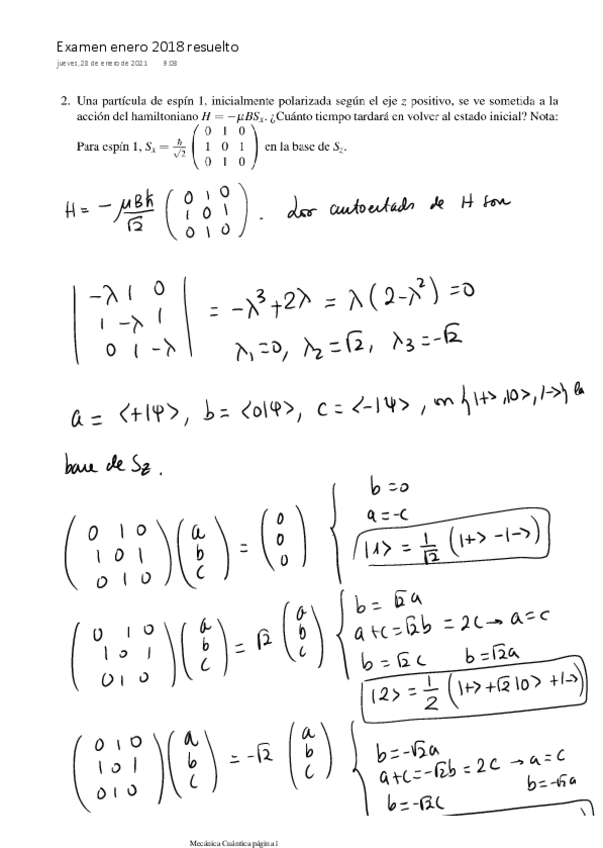 Examen enero 2018 resuelto
jueves, 28 de enero de 2021 9:08
2. Una partícula de espín 1, inicialmente polarizada según el eje z positivo, se ve sometida a la
acción del hamiltoniano H = −μBSₓ. ¿Cuánto tiempo tardará en volver al estado inicial? Nota:
Para espín 1, Sₓ = ℏ/√2 ( 0 1 0 ; 1 0 1 ; 0 1 0 ) en la base de S_z.
H = − μBℏ/√2 ( 0 1 0 ; 1 0 1 ; 0 1 0 ) . Los autoestados de H son
| −λ 1 0 ; 1 −λ 1 ; 0 1 −λ | = −λ³ + 2λ = λ(2−λ²) = 0
λ₁=0, λ₂=√2, λ₃=−√2
a = <+|Ψ>, b = <0|Ψ>, c = <−|Ψ>, en {|+>, |0>, |−>} la
base de S_z.
( 0 1 0 ; 1 0 1 ; 0 1 0 ) ( a ; b ; c ) = ( 0 ; 0 ; 0 )
b = 0
a = −c
|1> = 1/√2 (|+> − |−>)
( 0 1 0 ; 1 0 1 ; 0 1 0 ) ( a ; b ; c ) = √2 ( a ; b ; c )
b = √2a
a+c = √2b = 2c → a = c
b = √2c b = √2a
|2> = 1/2 (|+> + √2|0> + |−>)
( 0 1 0 ; 1 0 1 ; 0 1 0 ) ( a ; b ; c ) = −√2 ( a ; b ; c )
b = −√2a
a+c = −√2b = 2c → a = c
b = −√2c b = −√2a
Mecánica Cuántica página 1